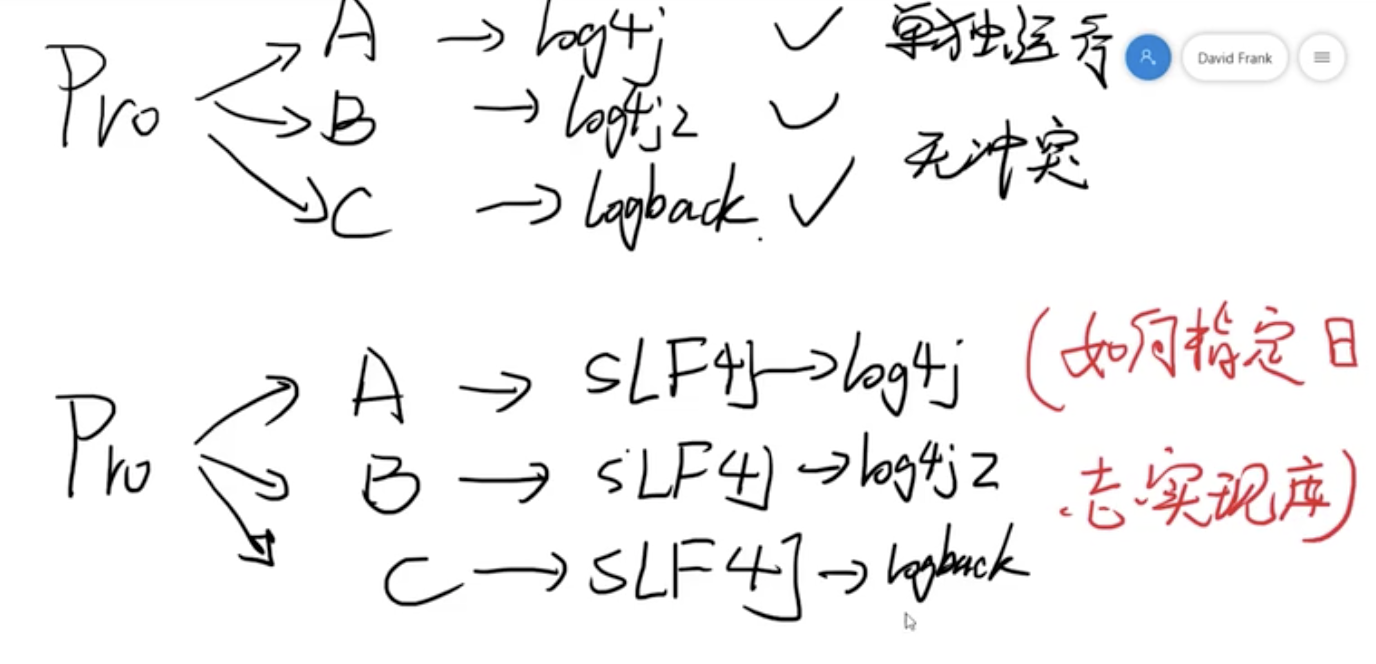 A → log4j ✓ 单独运行
Pro
B → log4j2 ✓
无冲突
C → logback. ✓
David Frank
A → SLF4J → log4j (如何指定日
Pro
B → SLF4J → log4j2 志实现库)
C → SLF4J → logback